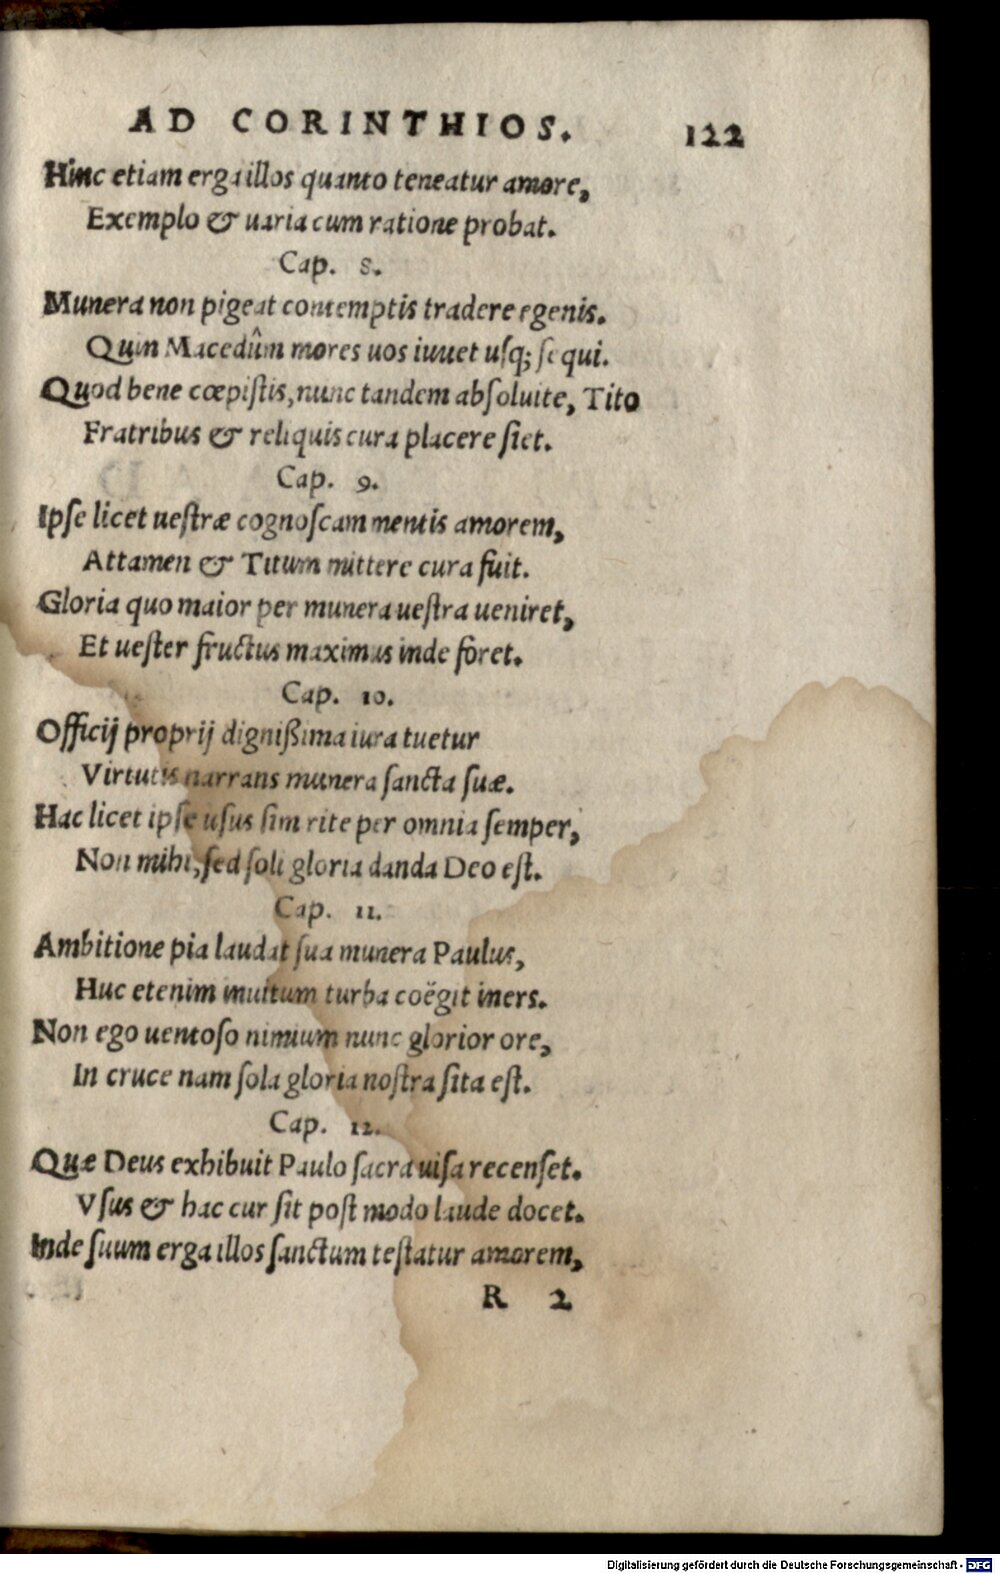 AD CORINTHIOS. 122
Hinc etiam erga illos quanto teneatur amore,
Exemplo & uaria cum ratione probat.
Cap. 8.
Munera non pigeat contemptis tradere egenis.
Quin Macedûm mores uos iuuet usq; sequi.
Quod bene cœpiſtis, nunc tandem abſoluite, Tito
Fratribus & reliquis cura placere ſiet.
Cap. 9.
Ipſe licet ueſtræ cognoſcam mentis amorem,
Attamen & Titum mittere cura fuit.
Gloria quo maior per munera ueſtra ueniret,
Et ueſter fructus maximus inde foret.
Cap. 10.
Officij proprij digniſsima iura tuetur
Virtutis narrans munera ſancta ſuæ.
Hac licet ipſe uſus ſim rite per omnia ſemper,
Non mihi, ſed ſoli gloria danda Deo eſt.
Cap. 11.
Ambitione pia laudat ſua munera Paulus,
Huc etenim inuitum turba coëgit iners.
Non ego uentoſo nimium nunc glorior ore,
In cruce nam ſola gloria noſtra ſita eſt.
Cap. 12.
Quæ Deus exhibuit Paulo ſacra uiſa recenſet.
Vſus & hac cur ſit poſt modo laude docet.
Inde ſuum erga illos ſanctum teſtatur amorem,
R 2
Digitalisierung gefördert durch die Deutsche Forschungsgemeinschaft - DFG